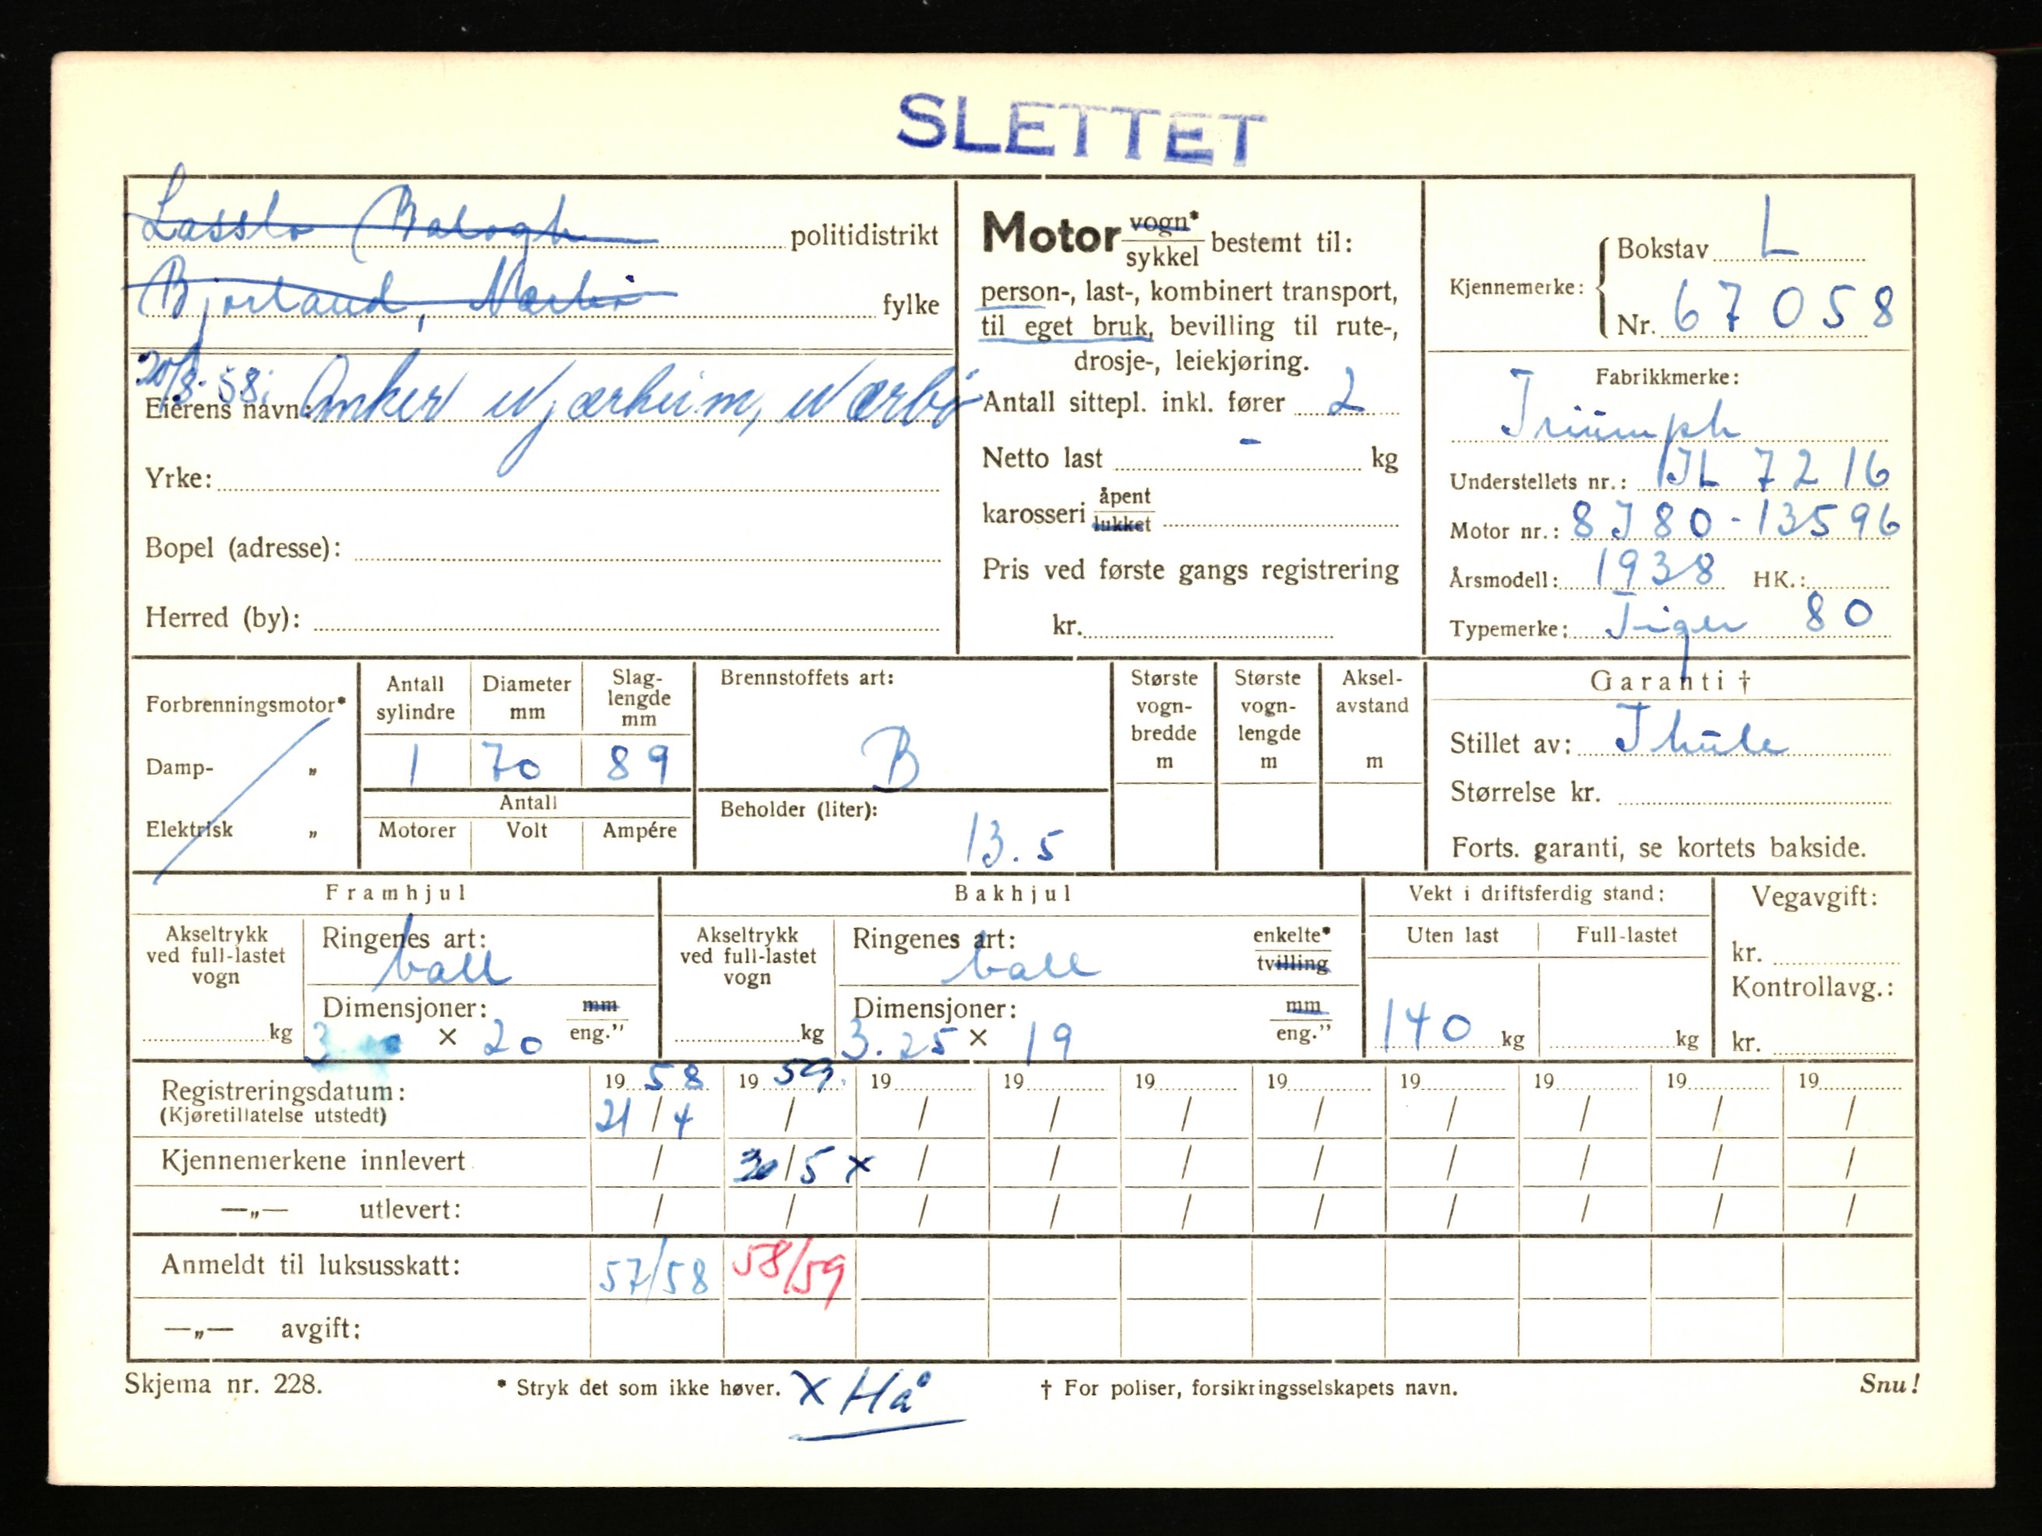 SLETTET
Lasslo Balogh politidistrikt
Bjorland, Nærbø fylke
20/8-58: Eierens navn: Anker Njærheim, Nærbø
Yrke:
Bopel (adresse):
Herred (by):
Motor vogn* / sykkel bestemt til:
person-, last-, kombinert transport,
til eget bruk, bevilling til rute-,
drosje-, leiekjøring.
Antall sittepl. inkl. fører 2
Netto last - kg
karosseri åpent / lukket
Pris ved første gangs registrering
kr.
Kjennemerke: { Bokstav L
Nr. 67058
Fabrikkmerke:
Triumph
Understellets nr.: TL 7216
Motor nr.: 8T80-13596
Årsmodell: 1938 HK.:
Typemerke: Tiger 80
Forbrenningsmotor*
Damp- „
Elektrisk „
Antall sylindre Diameter mm Slag-lengde mm
1 70 89
Antall
Motorer Volt Ampére
Brennstoffets art:
B
Beholder (liter):
13.5
Største vogn-bredde m
Største vogn-lengde m
Aksel-avstand m
Garanti †
Stillet av: Thule
Størrelse kr.
Forts. garanti, se kortets bakside.
Framhjul
Akseltrykk ved full-lastet vogn
kg
Ringenes art:
ball
Dimensjoner: mm / eng."
3. × 20
Bakhjul
Akseltrykk ved full-lastet vogn
kg
Ringenes art: enkelte* / tvilling
ball
Dimensjoner: mm / eng."
3.25 × 19
Vekt i driftsferdig stand:
Uten last Full-lastet
140 kg kg
Vegavgift:
kr.
Kontrollavg.:
kr.
Registreringsdatum: 19 58 19 59. 19 19 19 19 19 19 19 19
(Kjøretillatelse utstedt) 21/4 / / / / / / / / /
Kjennemerkene innlevert / 30/5 x / / / / / / / /
—„— utlevert: / / / / / / / / / /
Anmeldt til luksusskatt: 57/58 58/59
—„— avgift:
Skjema nr. 228. * Stryk det som ikke høver. x Hå † For poliser, forsikringsselskapets navn. Snu!